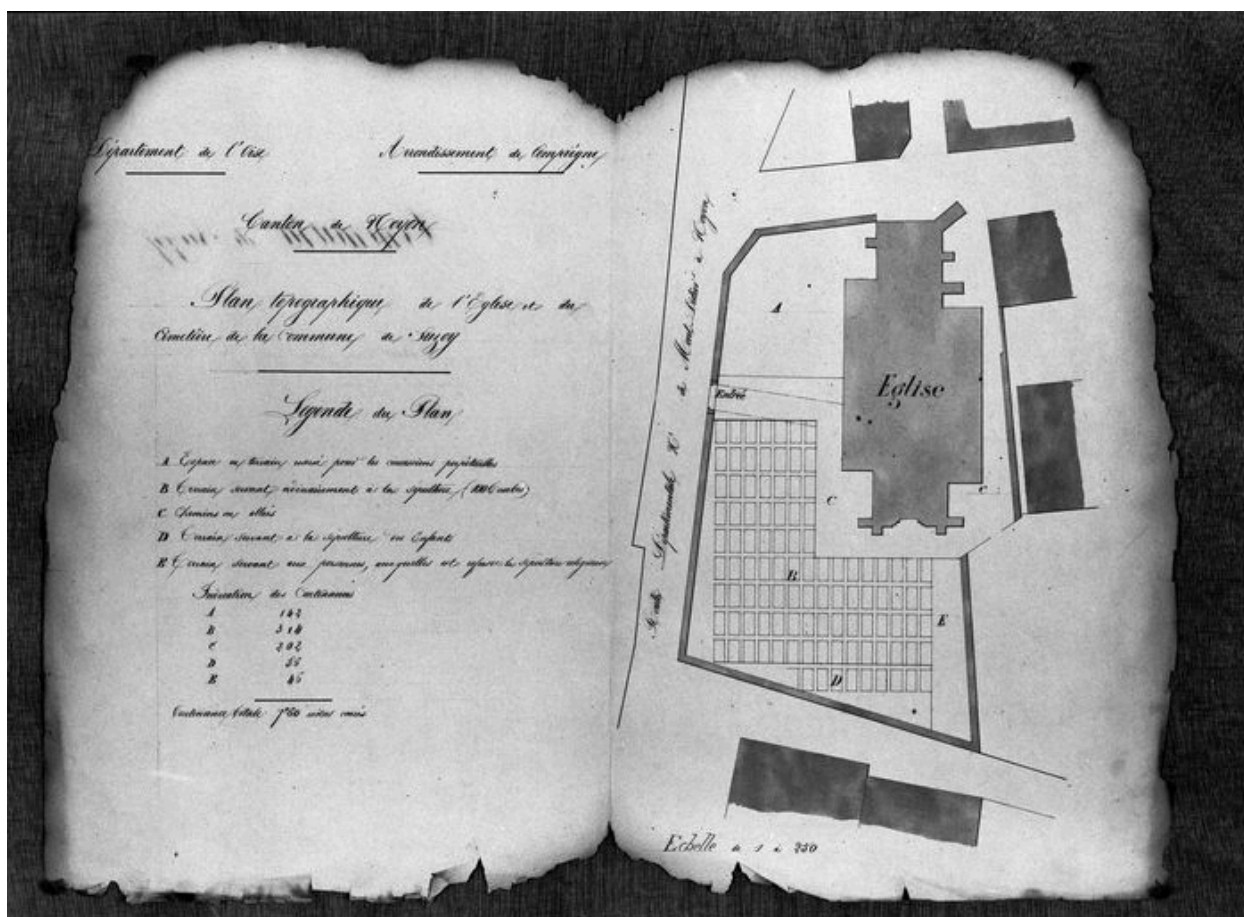 Département de l'Oise
Arrondissement de Compiègne
Canton de Noyon
Plan topographique de l'Eglise et du
Cimetière de la commune de Suzoy
Légende du Plan
A Espace ou terrain réservé pour les concessions perpétuelles
B Terrain servant à la sépulture
C Chemins ou allées
D Terrain servant à la sépulture des Enfants
E Terrain servant aux personnes, auxquelles est refusée la sépulture religieuse
Indication des Contenances
A 142
B 314
C 202
D 56
E 46
Contenance totale 760 mètres carrés
Route Départementale N° de à Noyon
A
Entrée
Eglise
C
C
B
E
D
Echelle de 1 à 250